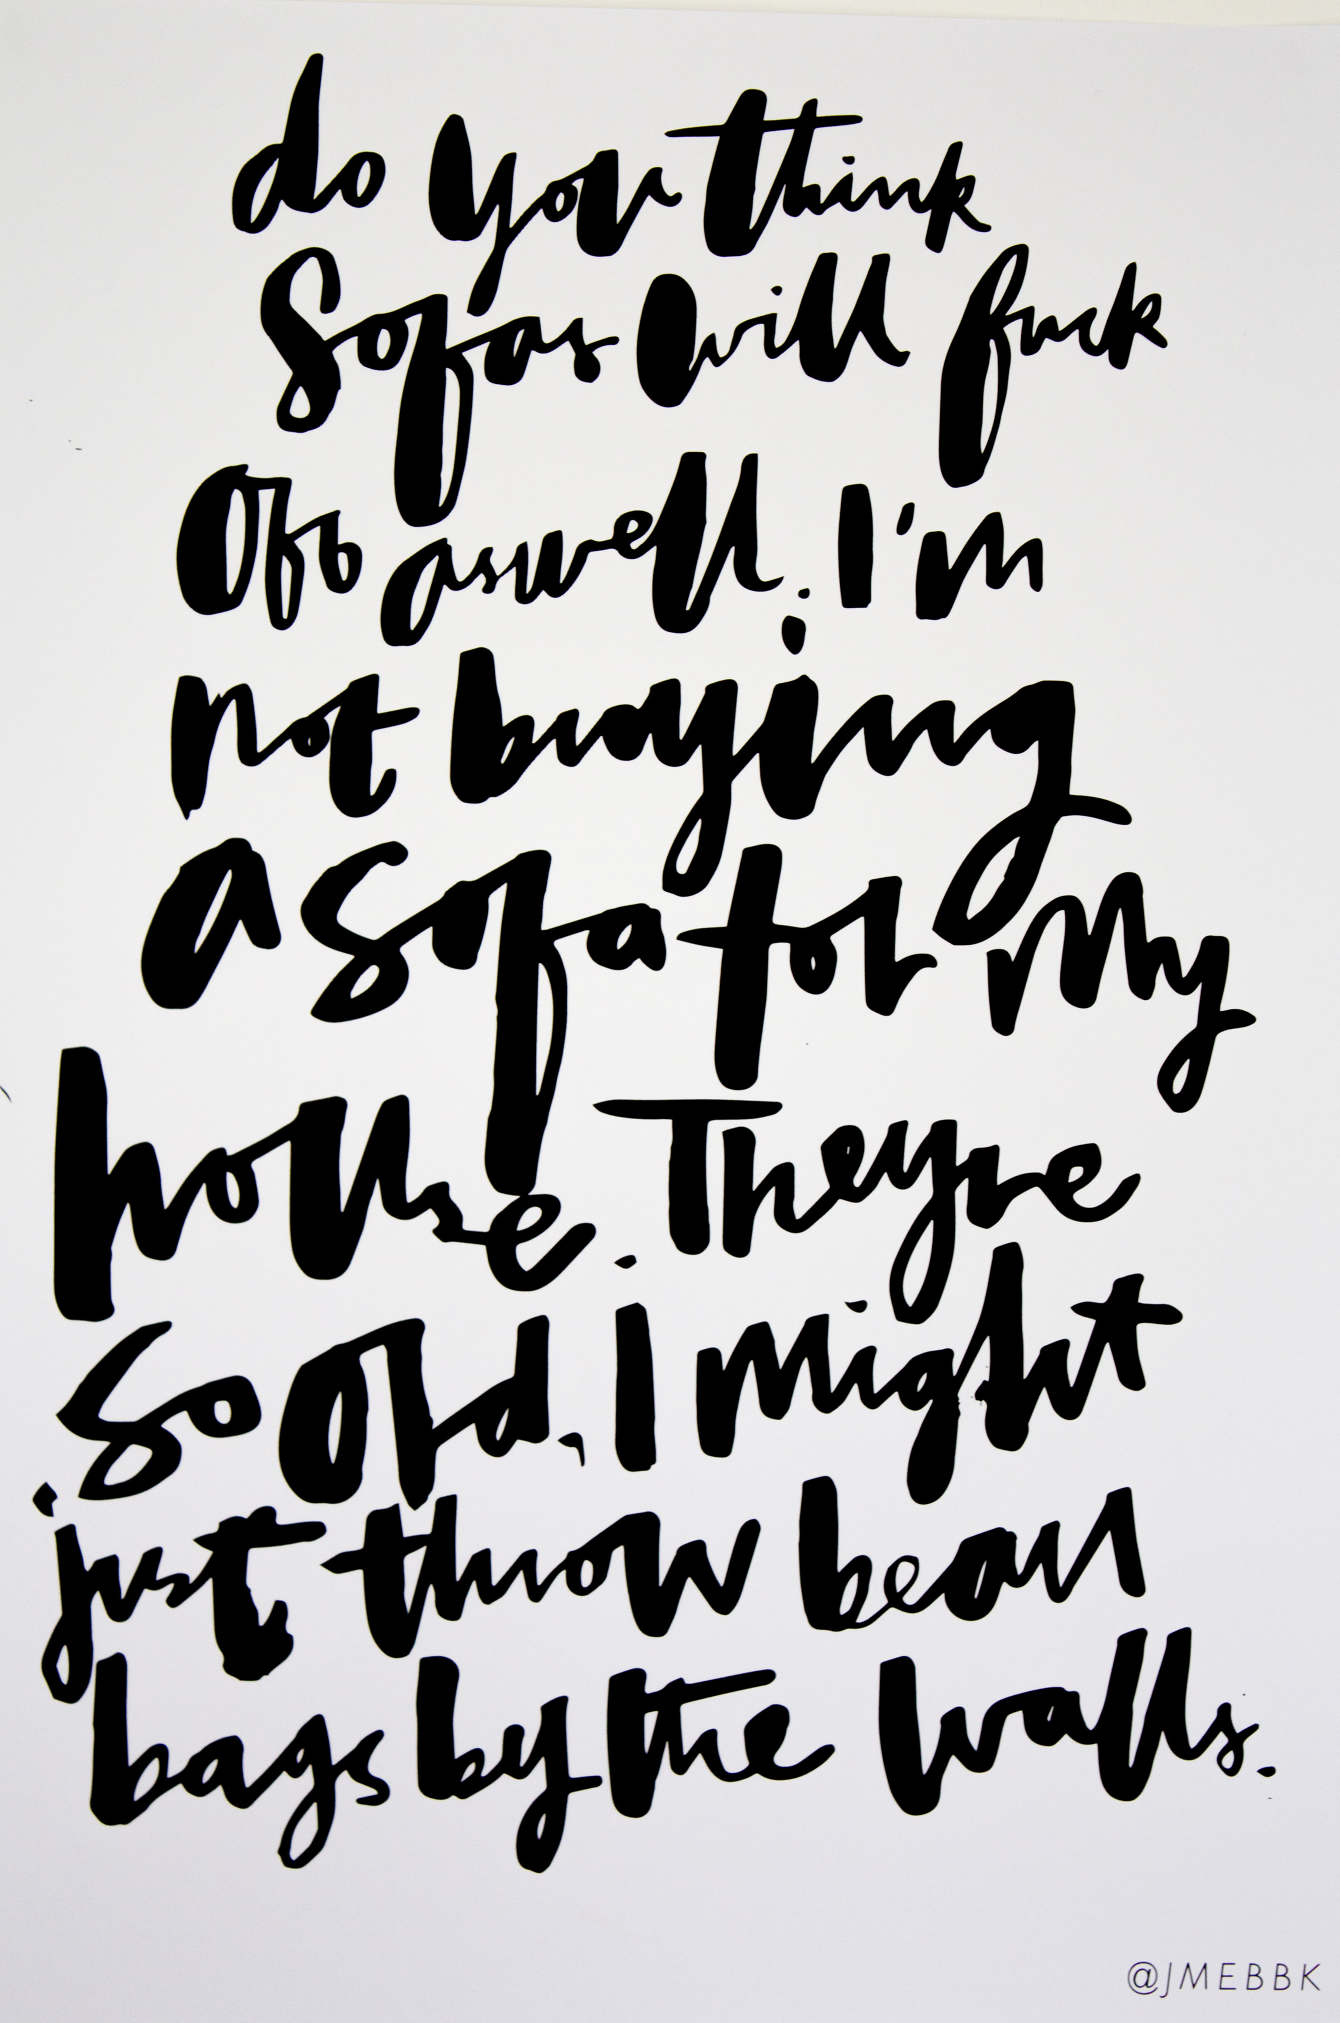 do you think
Sofas will fuck
Off aswell. I'm
not buying
a sofa for my
house. Theyre
so old, I might
just throw bean
bags by the walls.
@JMEBBK